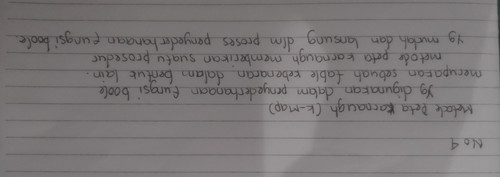 No 4
Metode Peta Karnaugh (K-Map)
Yg digunakan dalam penyederhanaan fungsi boole
merupakan sebuah table kebenaran dalam bentuk lain.
metode peto karnaugh memberikan suatu prosedur
yg mudah dan lansung dlm proses penyederhanaan fungsi boole.